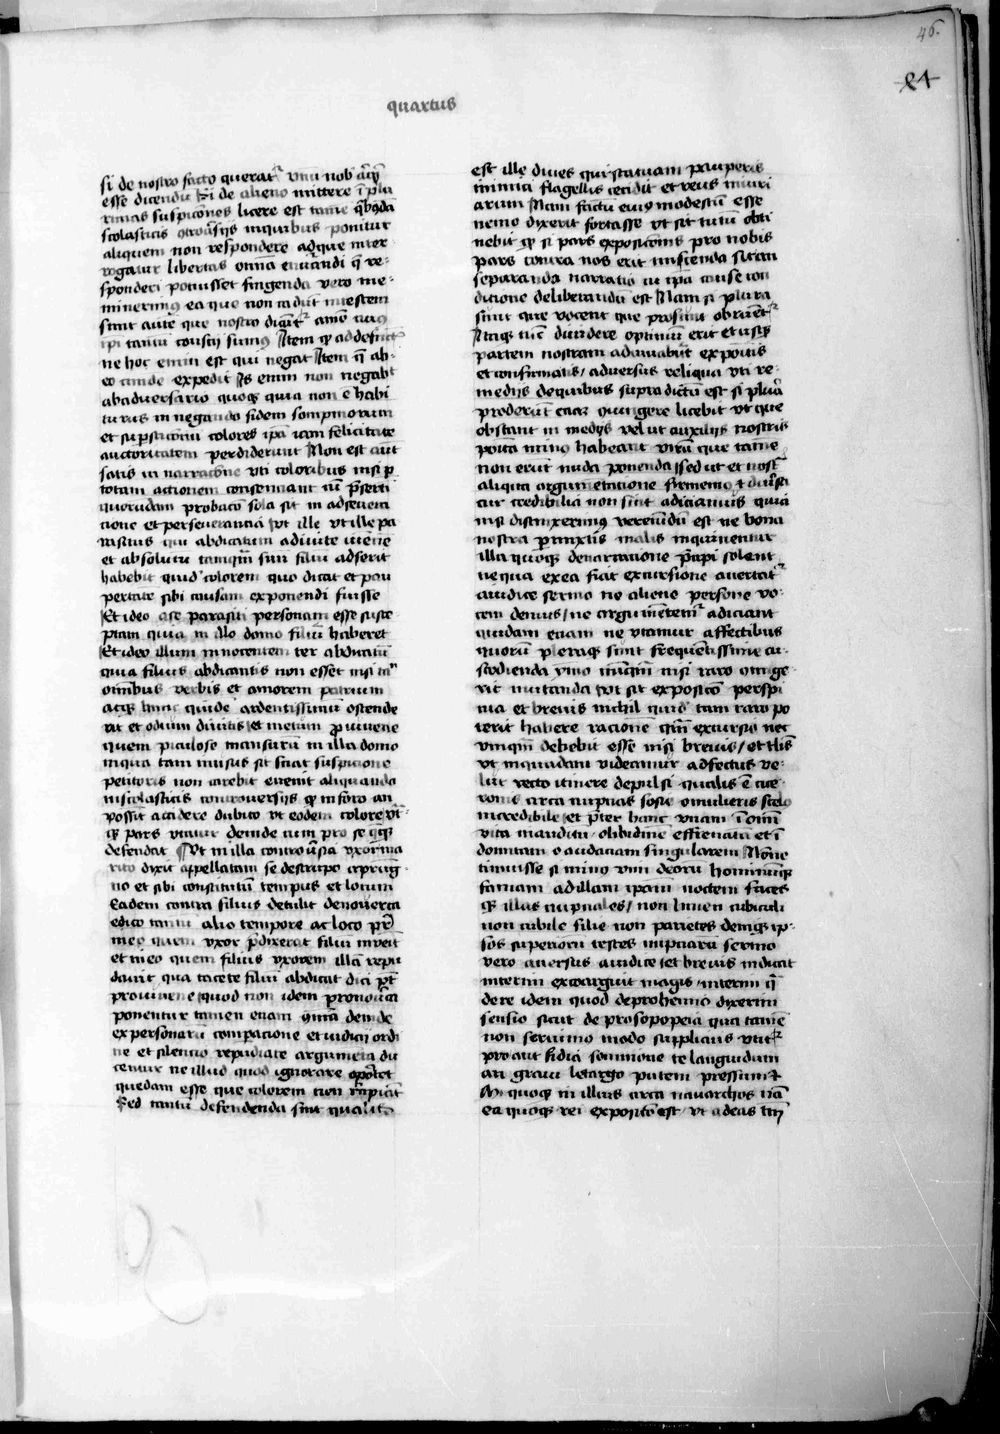 46.
84
quartus
si de nostro facto querat᷑ vnū nob̄ aliq̄
esse dicendū Si de alieno mittere ī plu
rimas suspicōnes licere est tamē q̄bꝰdā
scolasticis ꝯtrov̄sijs in quibus ponitur
aliquem non respondere adque inter
rogatur libertas omnia enūerandi q̄ re-
sponderi potuisset fingenda vero me-
minerimꝰ ea que non cadūt in testem
sunt autē que nostro dicūt᷑ aīo cuiꝰ
ipi tantū conscij sumꝰ Item qͦ ad defūct
ne hoc enim est qui negat Item q̄ ab-
eo cui idē expedit Is enim non negabit
ab adversario quoqꝫ quia non ē habi
turus in negando fidem sompniorum
et sup̄stitiōnū colores ip̄a iam felicitate
auctoritatem perdiderunt Non est aūt
satis in narracōne vti coloribus nisi ꝑ
totam actionem consentiant cū p̄serti
quorundam probatio sola sit in asseuera
tione et perseverancia vt ille vt ille pa
rasitus qui abdicatum a divite iuvenē
et absolutū tamqm̄ suū filiū adserit
habebit quidē colorem quo dicat et pau
pertatē sibi causam exponendi fuisse
Et ideo a se parasiti personam esse susce
ptam quia in illo domo filiū haberet
Et ideo illum innocentem ter abdicatū
quia filius abdicantis non esset nisi tn̄
omībus verbis et amorem patrium
atqꝫ hunc quidē ardentissimū ostende
rit et odium diuitis et metum ꝓ iuvene
quem ꝑiculose mansurū in illa domo
in qua tam inuisus sit sciat suspicione
petitoris non carebit euenit aliquando
in scolasticis controversijs qͦ in foro an
possit accidere dubito vt eodem colore vt
qꝫ pars vtatur deinde eum pro se q̄qꝫ
defendat Vt in illa controv̄sia vxor ma
rito dixit appellatam se de stupro a priuig
no et sibi constitutū tempus et locum
Eadem contra filius detulit de nouerca
edito tantū alio tempore ac loco pr̄
in eo quem vxor p̄dixerat filiū inveit
et in eo quem filius vxorem illā repu
diauit qua tacēte filiū abdicat dici pt̄
pro iuuene quod non idem pro nouerca
ponentur tamen etiam ꝯmūia deinde
ex personarū comparacione et iudicij ordi
ne et silentio repudiate argumēta du
centur ne illud quod ignorare oportet
quedam esse que colorem non recipiāt
Sed tantū defendenda sint qualis
est ille dives qui statuam pauperis
inimici flagellis cecidit et reus iniuri
arum Nam factū eiꝰ modestū esse
nemo dixerit fortasse vt sit tutū obti
nebit qͦ si pars expositionis pro nobis
pars contra nos erit miscenda sit an
separanda narratio in ip̄a cause con
dicione deliberandū est Nam si plura
sunt que nocent que prosunt obruent᷑
Itaqꝫ tūc diuidere optimū erit et iisqꝫ
partem nostram adiuuabūt expositis
et confirmatis / adversus reliqua vti re-
medijs de quibus supra dictū est si plura
proderūt eciaꝫ ꝯiungere licebit vt que
obstant in medijs vel ut auxilijs nostris
posita minꝰ habeant viriū que tamē
non erūt nuda ponenda sed ut et nost᷑
aliqua argumētatione firmemꝰ et diūsa
cur credibilia non sint adiciamus quia
nisi distinxerimꝰ verendū est ne bona
nostra permixtis malis inquinentur
illa quoqꝫ de narratione p̄cipi solent
ne qua ex ea fiat excursio ne auertat᷑
a iudice sermo ne aliene persone vo-
cem demus / ne argumētem᷑ adiciant
quidam etiam ne vtamur affectibus
quorū pleraqꝫ sunt frequētissime cu-
stodienda ymo nūqm̄ nisi racio coege
rit mutanda vt sit expositō perspi
cua et brevis nichil quid tam raro po
terit habere racionē qm̄ excursio nec
vmqm̄ debebit esse nisi breuis / et tlis
vt in quadam videamur adfectus ve-
lut recto itinere depulsi qualis ē cice
ronis circa nupcias sosie o mulieris scelꝰ
incredibile et preter hanc vnam ī omi
vita inauditū / o libidinē effrenatā et ī
domitam o audatiam singularem Nōne
timuisse si minꝰ vim deorū hominūqꝫ
famam ad illam ipam noctem faces
qꝫ illas nupciales / non limen cubiculi
non cubile filie non parietes deniqꝫ ip-
sos superiorū testes nupciarū sermo
vero auersus a iudice et brevis indicat
interim et coarguit magis / interim q̄
de re idem quod de prohemio dixerim
sensio sicut de prosopopeia qua tamē
non seruius modo sulpicius vtit᷑
pro aut fidia somnione te languidum
an graui letargo putem pressum et
M quoqꝫ tullius circa nauarchos nā
ea quoqꝫ rei expositō est / vt adeas tm̄